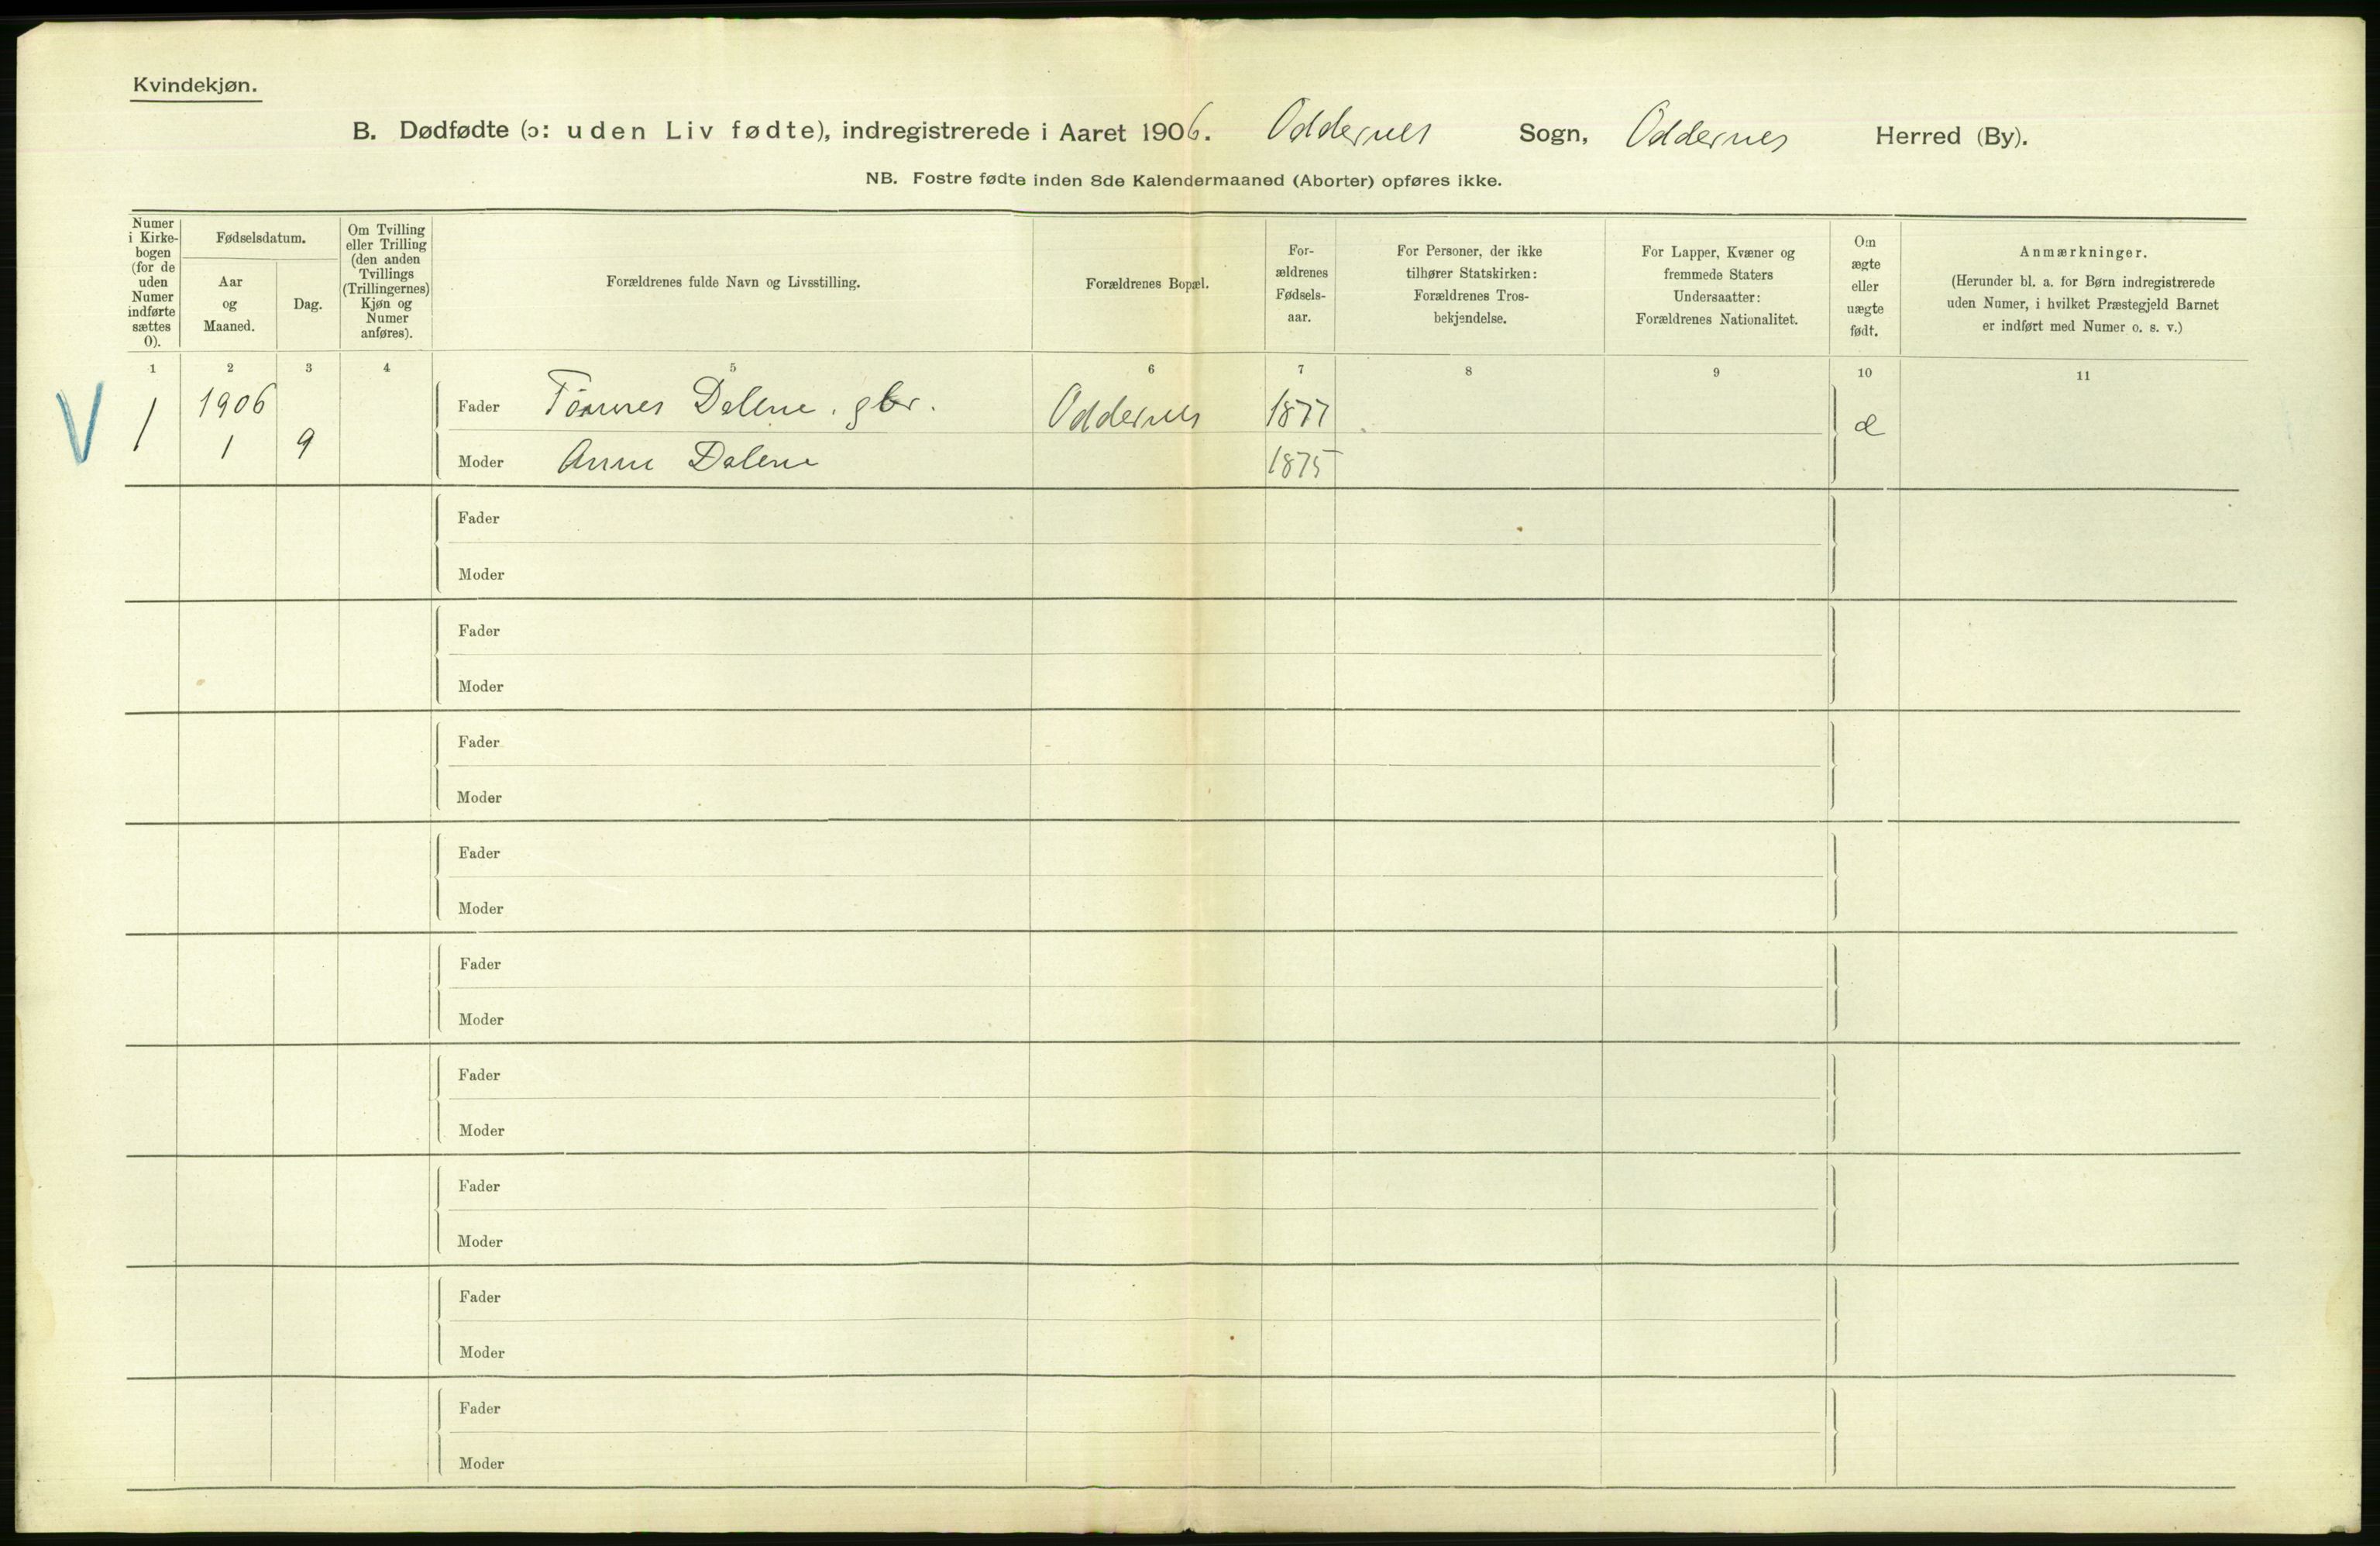 Kvindekjøn.
B. Dødfødte (ɔ: uden Liv fødte), indregistrerede i Aaret 1906. Oddernes Sogn, Oddernes Herred (By).
NB. Fostre fødte inden 8de Kalendermaaned (Aborter) opføres ikke.
Numer
i Kirke-
bogen
(for de
uden
Numer
indførte
sættes
0).
Fødselsdatum.
Aar
og
Maaned.
Dag.
Om Tvilling
eller Trilling
(den anden
Tvillings
(Trillingernes)
Kjøn og
Numer
anføres).
Forældrenes fulde Navn og Livsstilling.
Forældrenes Bopæl.
For-
ældrenes
Fødsels-
aar.
For Personer, der ikke
tilhører Statskirken:
Forældrenes Tros-
bekjendelse.
For Lapper, Kvæner og
fremmede Staters
Undersaatter:
Forældrenes Nationalitet.
Om
ægte
eller
uægte
født.
Anmærkninger.
(Herunder bl. a. for Børn indregistrerede
uden Numer, i hvilket Præstegjeld Barnet
er indført med Numer o. s. v.)
1 2 3 4 5 6 7 8 9 10 11
V 1 1906 Fader Tönnes Dalene, gbr. Oddernes 1877 æ
1 9 Moder Anne Dalene 1875
Fader
Moder
Fader
Moder
Fader
Moder
Fader
Moder
Fader
Moder
Fader
Moder
Fader
Moder
Fader
Moder
Fader
Moder